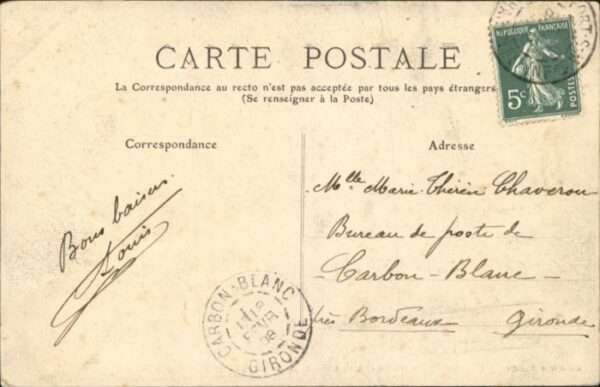 CARTE POSTALE
La Correspondance au recto n'est pas acceptée par tous les pays étrangers
(Se renseigner à la Poste)
RÉPUBLIQUE FRANÇAISE
5c
POSTES
Correspondance
Adresse
Bons baisers
Louis
Mlle Marie-Thérèse Chaverou
Bureau de poste de
Carbon-Blanc
près Bordeaux Gironde
CARBON-BLANC
GIRONDE
08